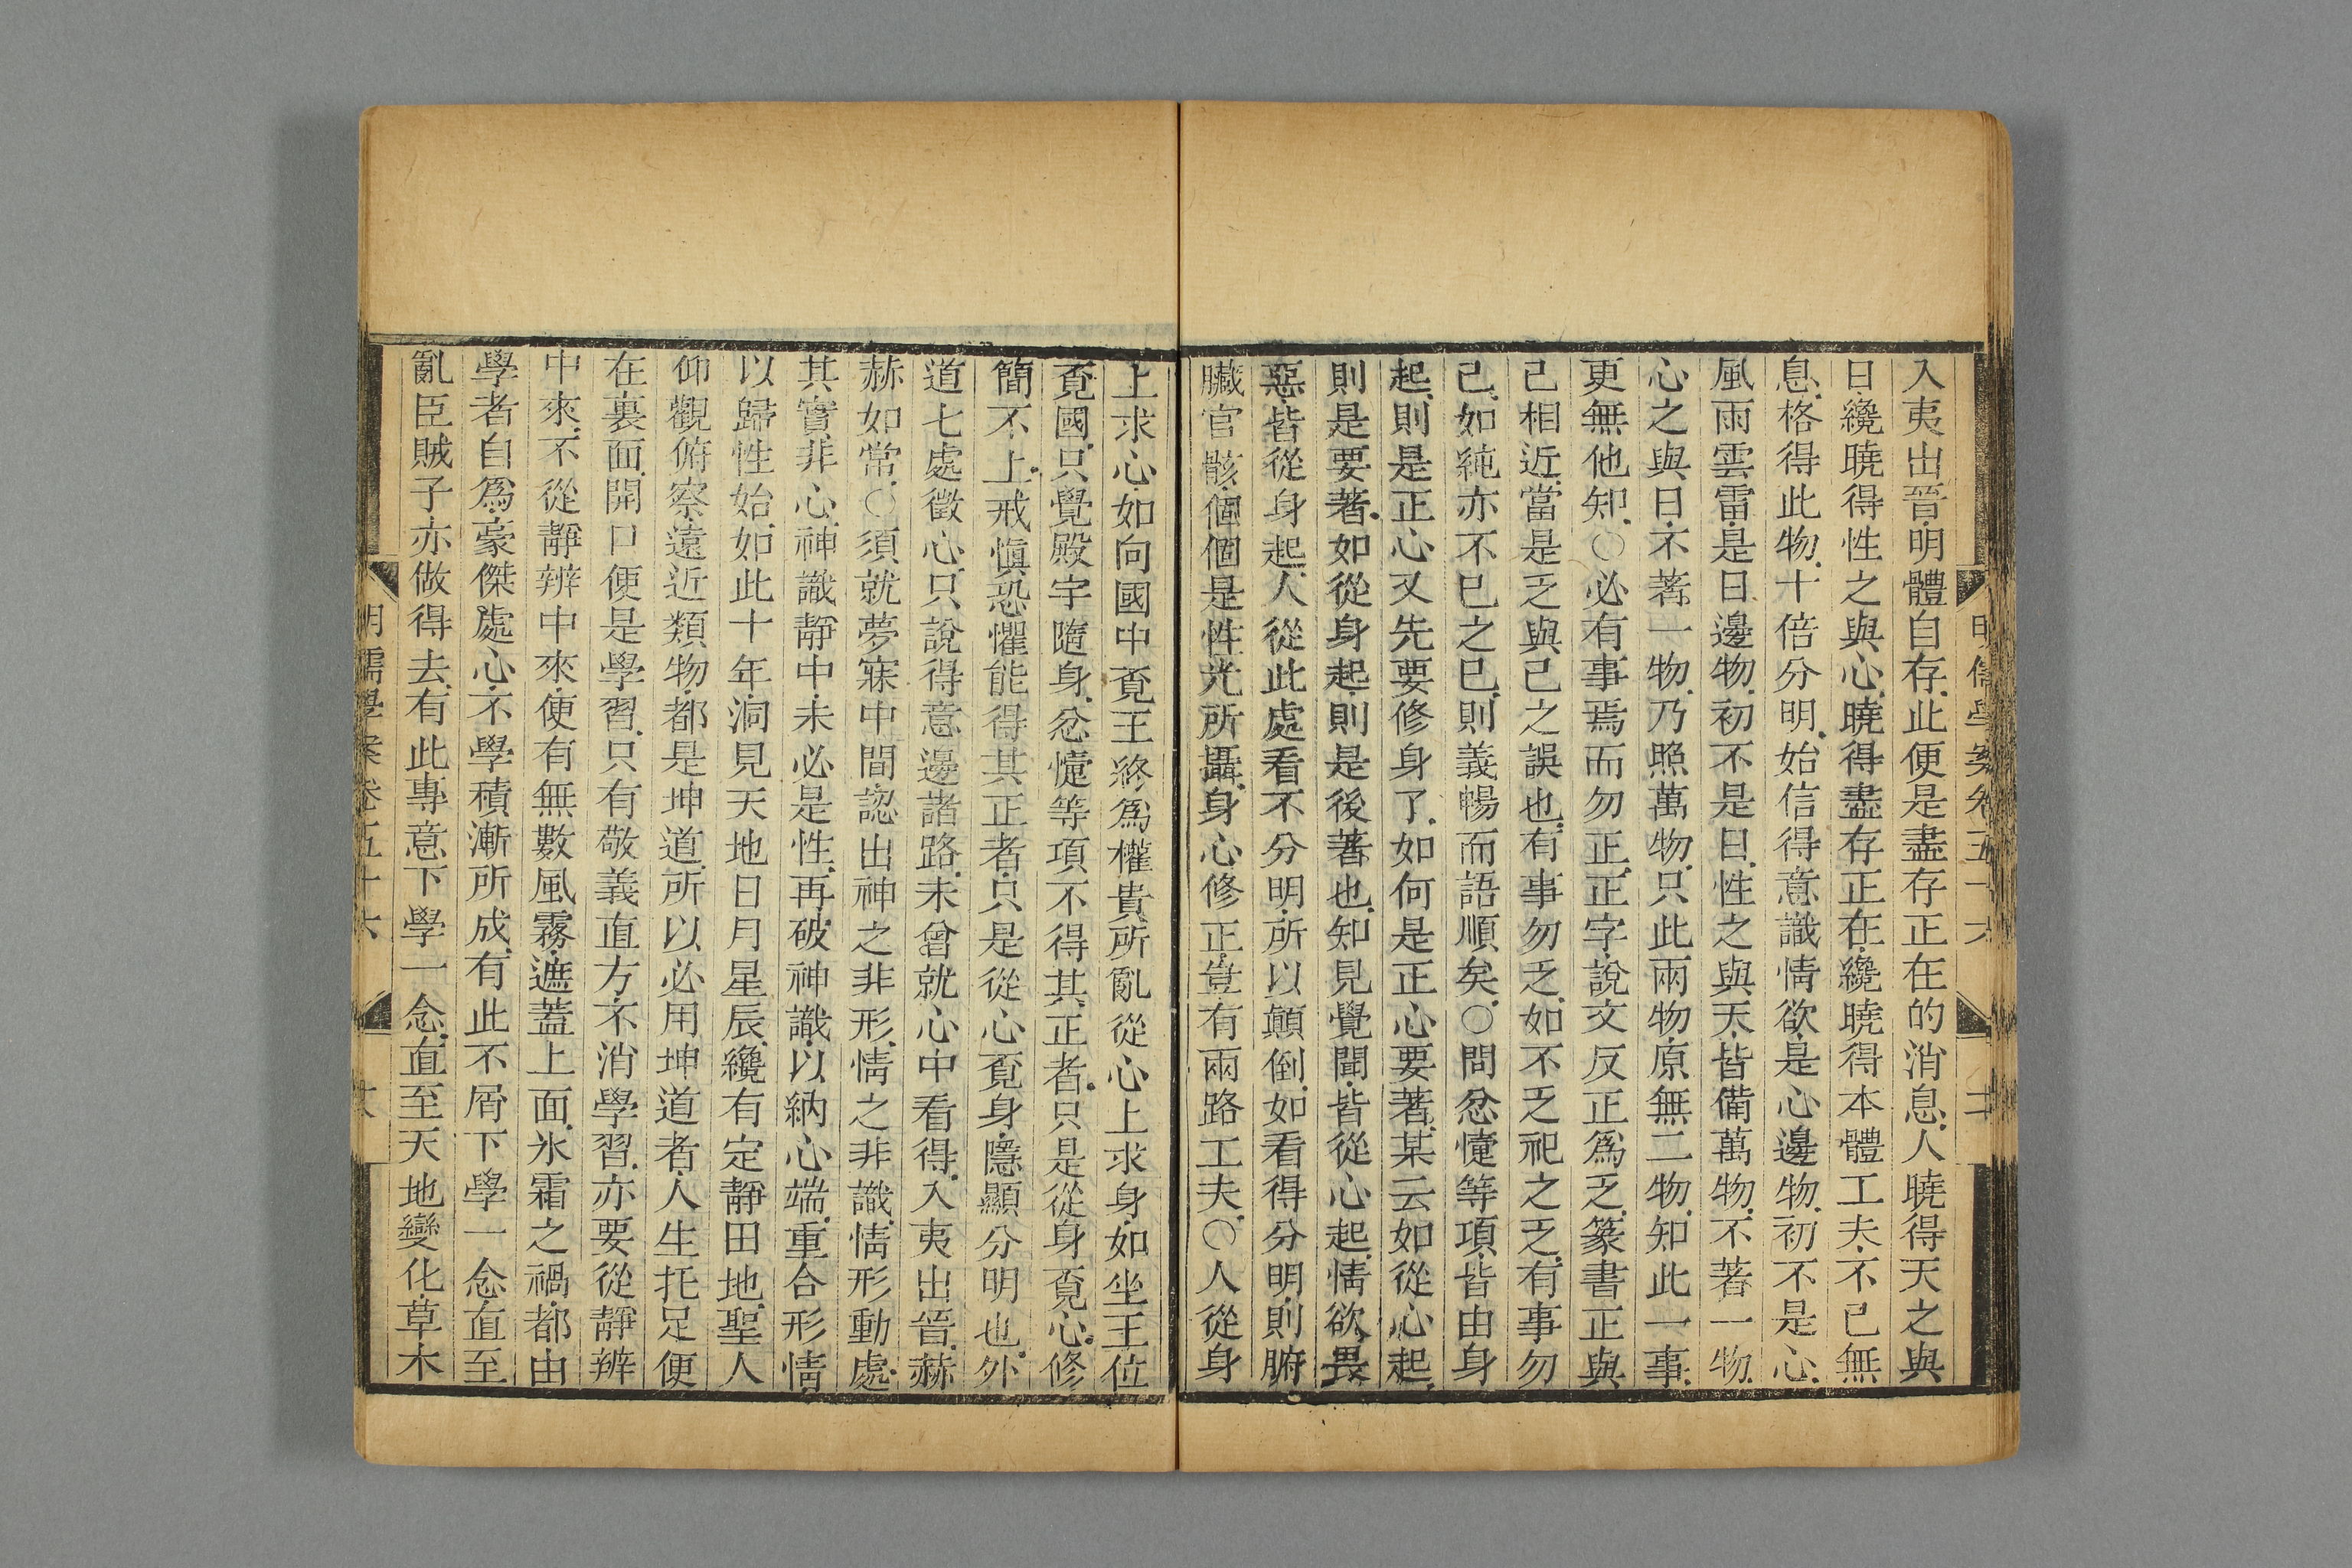 入夷出晉明體自存此便是盡存正在的消息人曉得天之與
日纔曉得性之與心曉得盡存正在纔曉得本體工夫不已無
息格得此物十倍分明始信得意識情欲是心邊物初不是心
風雨雲雷是日邊物初不是日性之與天皆備萬物不著一物
心之與日不著一物乃照萬物只此兩物原無二物知此一事
更無他知○必有事焉而勿正正字說文反正為乏篆書正與
己相近當是乏與己之誤也有事勿乏如不乏祀之乏有事勿
已如純亦不已之已則義暢而語順矣○問忿懥等項皆由身
起則是正心又先要修身了如何是正心要著某云如從心起
則是要著如從身起則是後著也知見覺聞皆從心起情欲畏
惡皆從身起人從此處看不分明所以顛倒如看得分明則腑
臟官骸個個是性光所攝身心修正豈有兩路工夫○人從身
上求心如向國中覓王終爲權貴所亂從心上求身如坐王位
覓國只覺殿宇隨身忿懥等項不得其正者只是從身覓心修
簡不上戒愼恐懼能得其正者只是從心覓身隱顯分明也外
道七處徵心只說得意邊諸路未曾就心中看得入夷出晉赫
赫如常○須就夢寐中間認出神之非形情之非識情形動處
其實非心神識靜中未必是性再破神識以納心端重合形情
以歸性始如此十年洞見天地日月星辰纔有定靜田地聖人
仰觀俯察遠近類物都是坤道所以必用坤道者人生托足便
在裏面開口便是學習只有敬義直方不消學習亦要從靜辨
中來不從靜辨中來便有無數風霧遮蓋上面氷霜之禍都由
學者自爲豪傑處心不學積漸所成有此不屑下學一念直至
亂臣賊子亦做得去有此專意下學一念直至天地變化草木
明儒學案卷五十六